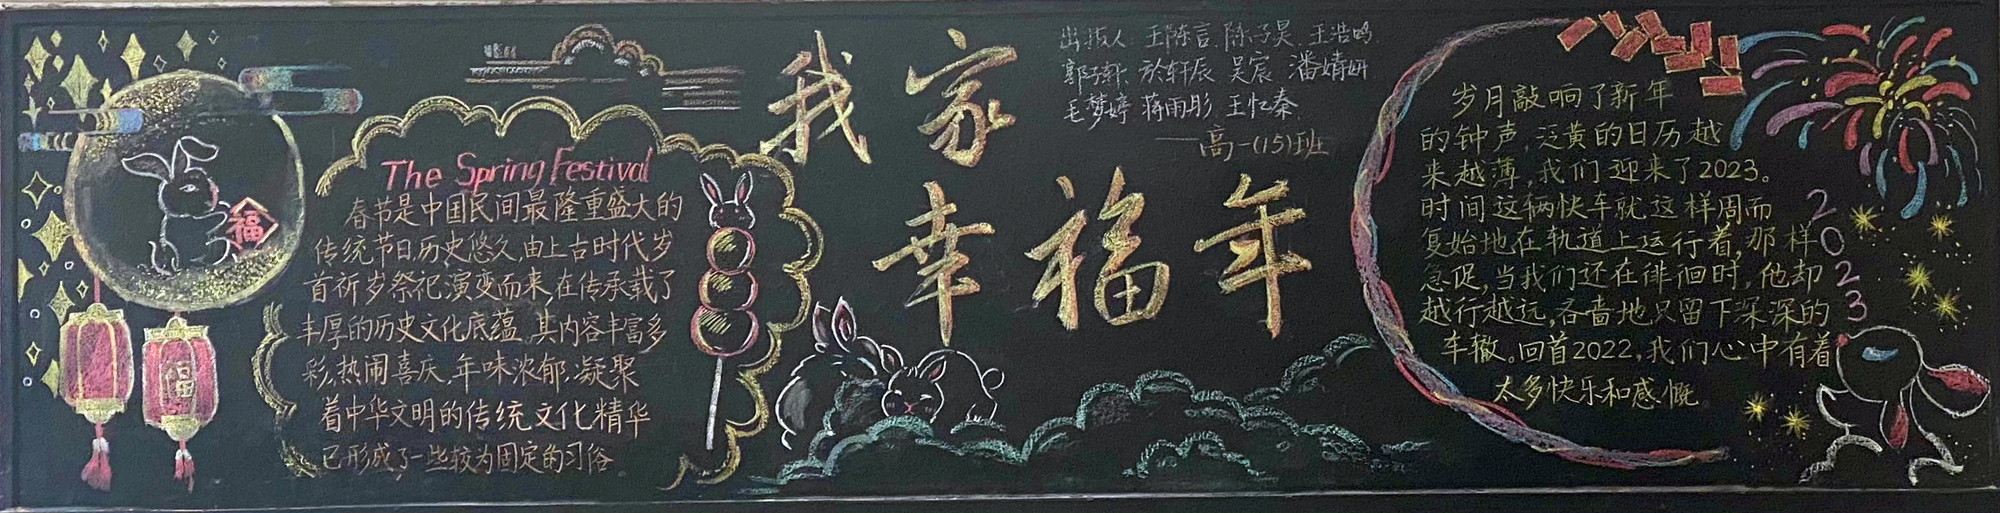 福
福
The Spring Festival
春节是中国民间最隆重盛大的
传统节日,历史悠久,由上古时代岁
首祈岁祭祀演变而来,在传承载了
丰厚的历史文化底蕴,其内容丰富多
彩,热闹喜庆,年味浓郁,凝聚
着中华文明的传统文化精华
已形成了一些较为固定的习俗
我家
幸福年
出板人:王陈言、陈子昊、王浩鸣
郭子轩、於轩辰、吴宸、潘婧妍
毛梦婷、蒋雨彤、王忆秦
——高一(15)班
岁月敲响了新年
的钟声,泛黄的日历越
来越薄,我们迎来了2023。
时间这辆快车就这样周而
复始地在轨道上运行着,那样
急促,当我们还在徘徊时,他却
越行越远,吝啬地只留下深深的
车辙。回首2022,我们心中有着
太多快乐和感慨
2023